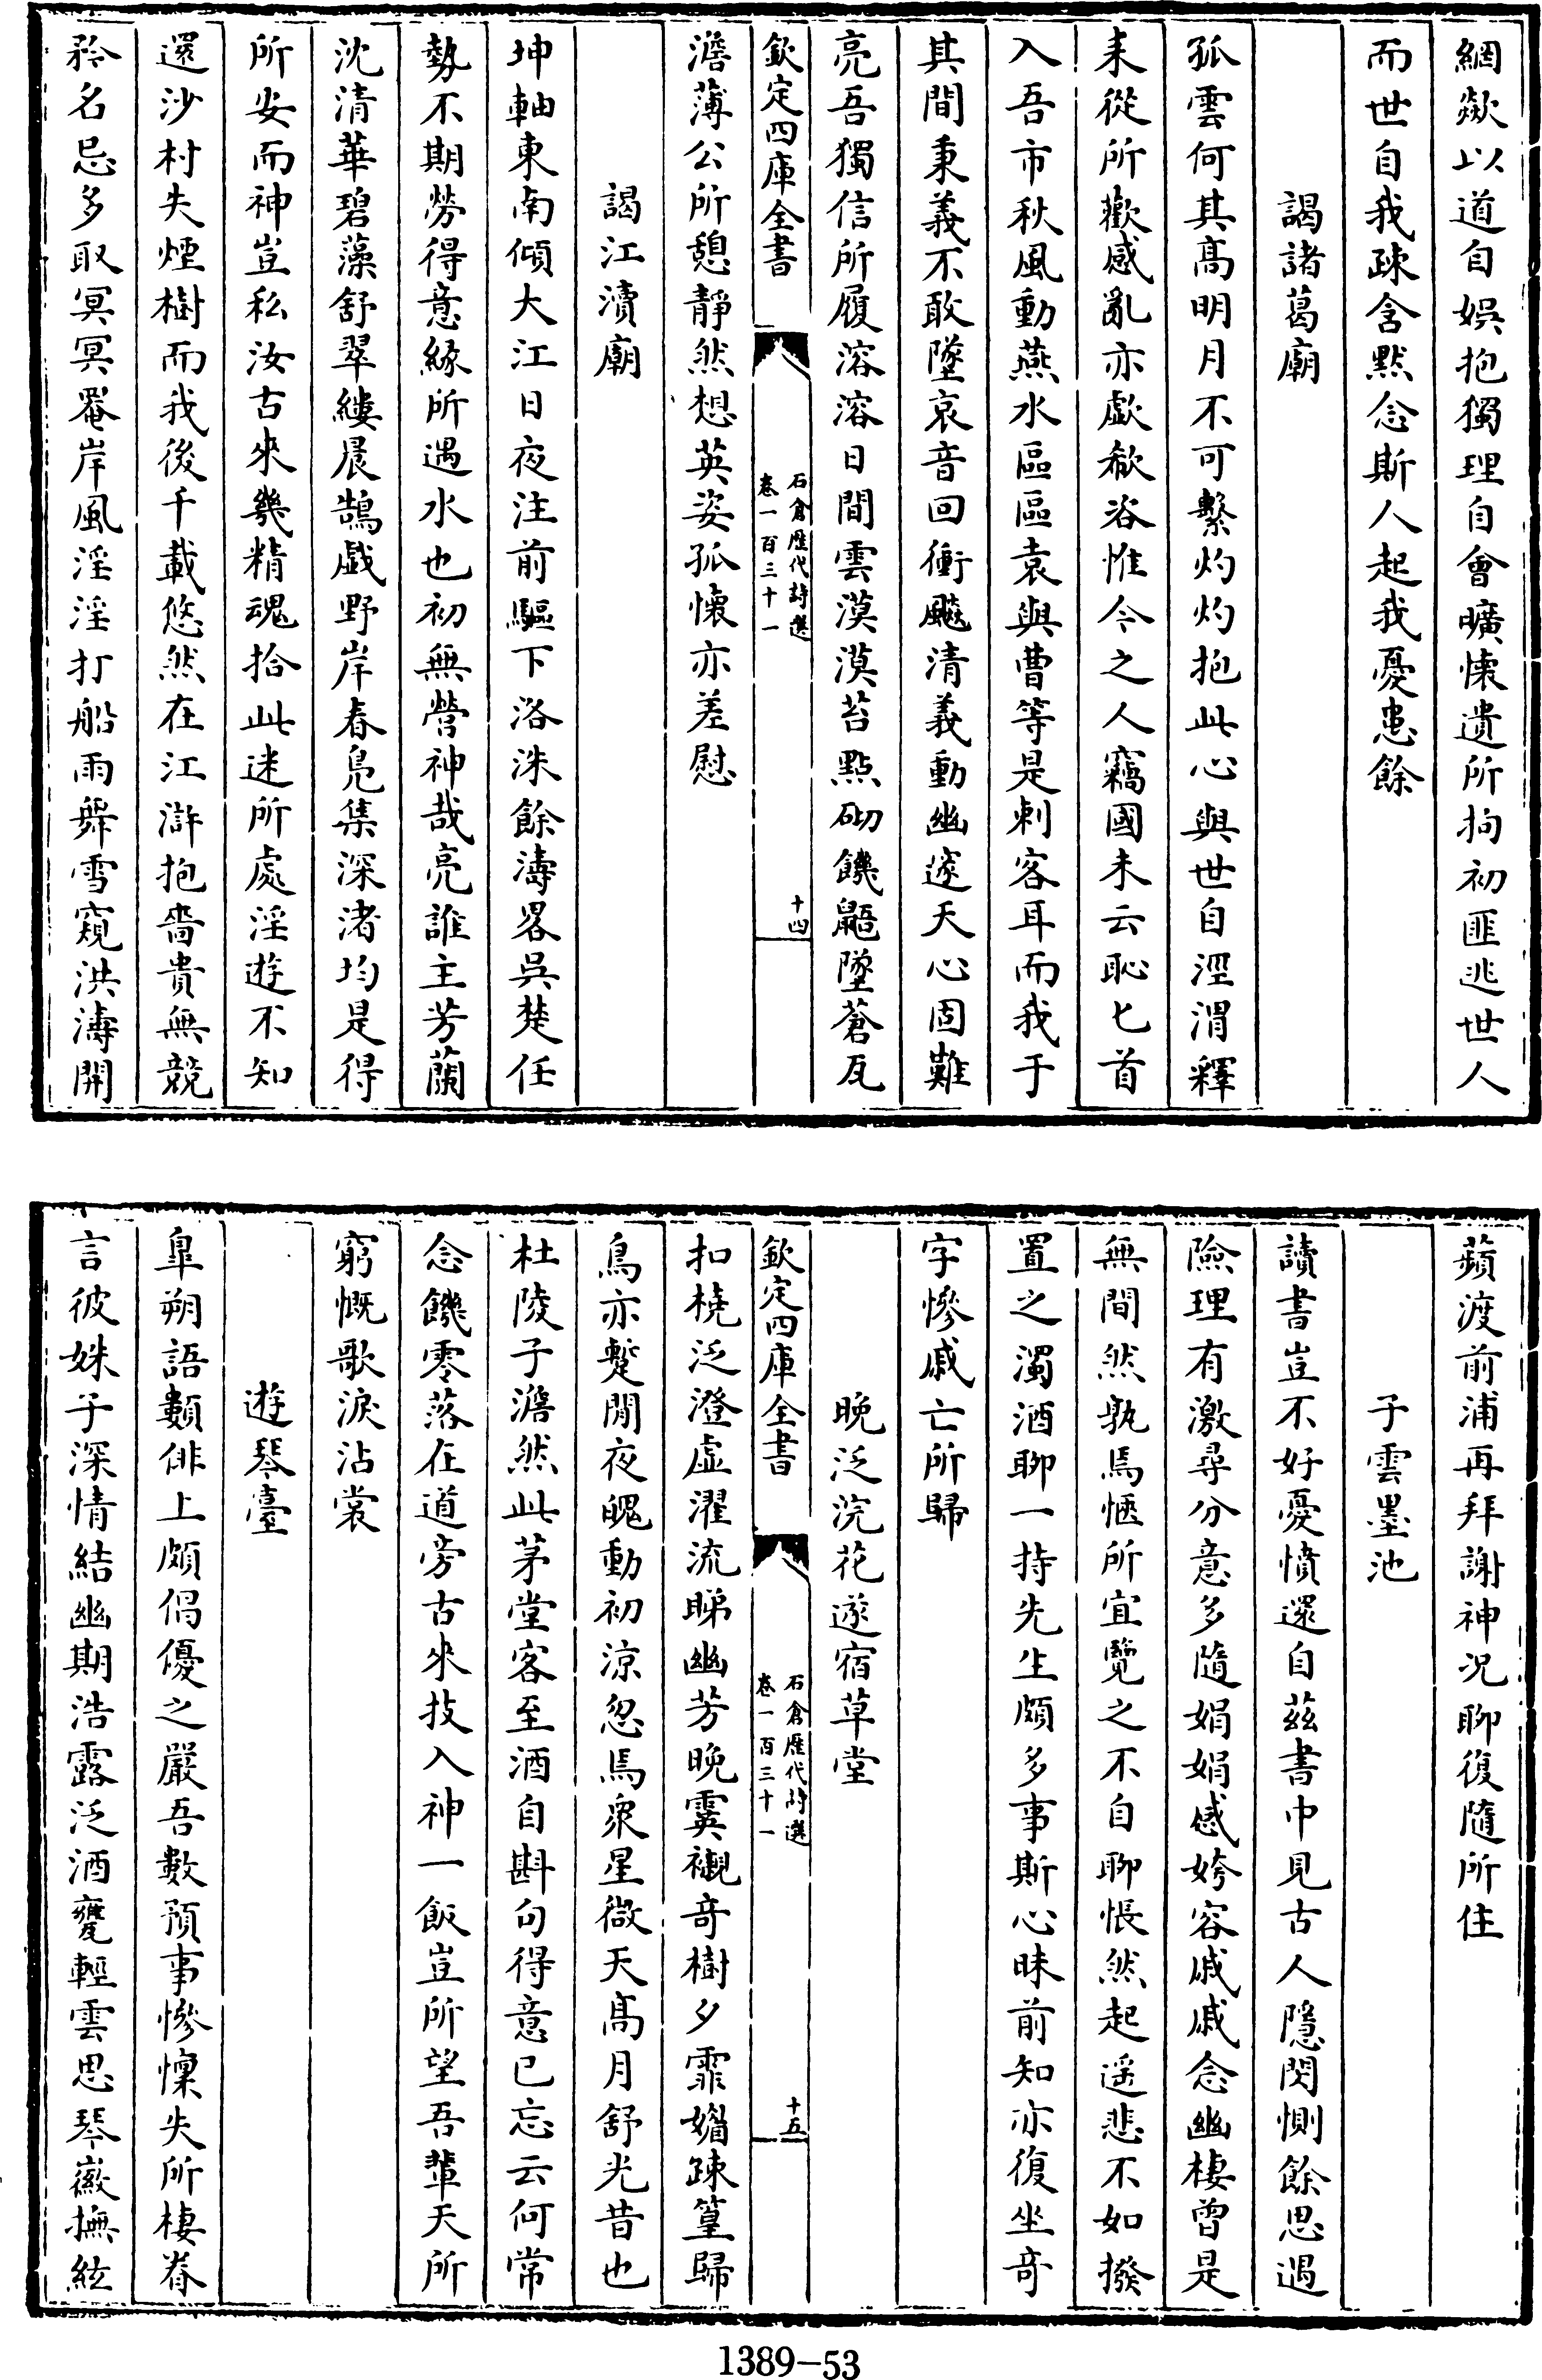 網歘以道自娯抱獨理自㑹曠懐遺所拘初匪逃世人
而世自我疎含黙念斯人起我憂患餘
謁諸葛廟
孤雲何其髙明月不可繫灼灼抱此心與世自涇渭釋
耒從所歡感亂亦歔欷浴惟今之人竊國未云恥匕首
入吾市秋風動燕水區區袁與曹等是刺客耳而我于
其間秉義不敢墜哀音回衝飈清義動幽邃天心固難
亮吾獨信所履溶溶日間雲漠漠苔㸃砌饑鼯墜蒼瓦
欽定四庫全書
石倉歴代詩選
卷一百三十一
十四
澹薄公所憩靜然想英姿孤懷亦差慰
謁江瀆廟
坤軸東南傾大江日夜注前驅下洛洙餘濤畧吳楚任
勢不期勞得意緣所遇水也初無營神哉亮誰主芳蘭
沈清華碧藻舒翠縷晨鵠戱野岸春鳧集深渚均是得
所安而神豈私汝古來幾精魂拾此迷所處淫遊不知
還沙村失煙樹而我後千載悠然在江滸抱嗇貴無競
矜名忌多取冥冥罨岸風淫淫打船雨舜雪窺洪濤開
蘋渡前浦再拜謝神況聊復隨所住
子雲墨池
讀書豈不好憂憤還自茲書中見古人隱閔惻餘思過
險理有激尋分意多隨娟娟感姱容戚戚念幽棲曾是
無間然孰焉愜所宜覽之不自聊悵然起遥悲不如撥
置之濁酒聊一持先生頗多事斯心昧前知亦復坐奇
字慘戚亡所歸
晚泛浣花遂宿草堂
欽定四庫全書
石倉歴代詩選
卷一百三十一
十五
扣橈泛澄虛濯流睇幽芳晚霙襯奇樹夕霏媚疎篁歸
鳥亦蹔閒夜魄動初涼忽焉衆星微天髙月舒光昔也
杜陵子澹然此茅堂客至酒自斟句得意已忘云何常
念饑零落在道旁古來技入神一飯豈所望吾輩天所
窮慨歌淚沾裳
遊琴臺
臯朔語數俳上頗倡優之嚴吾數預事慘懍失所棲眷
言彼姝子深情結幽期浩露泛酒甕輕雲思琴徽撫絃
1389-53